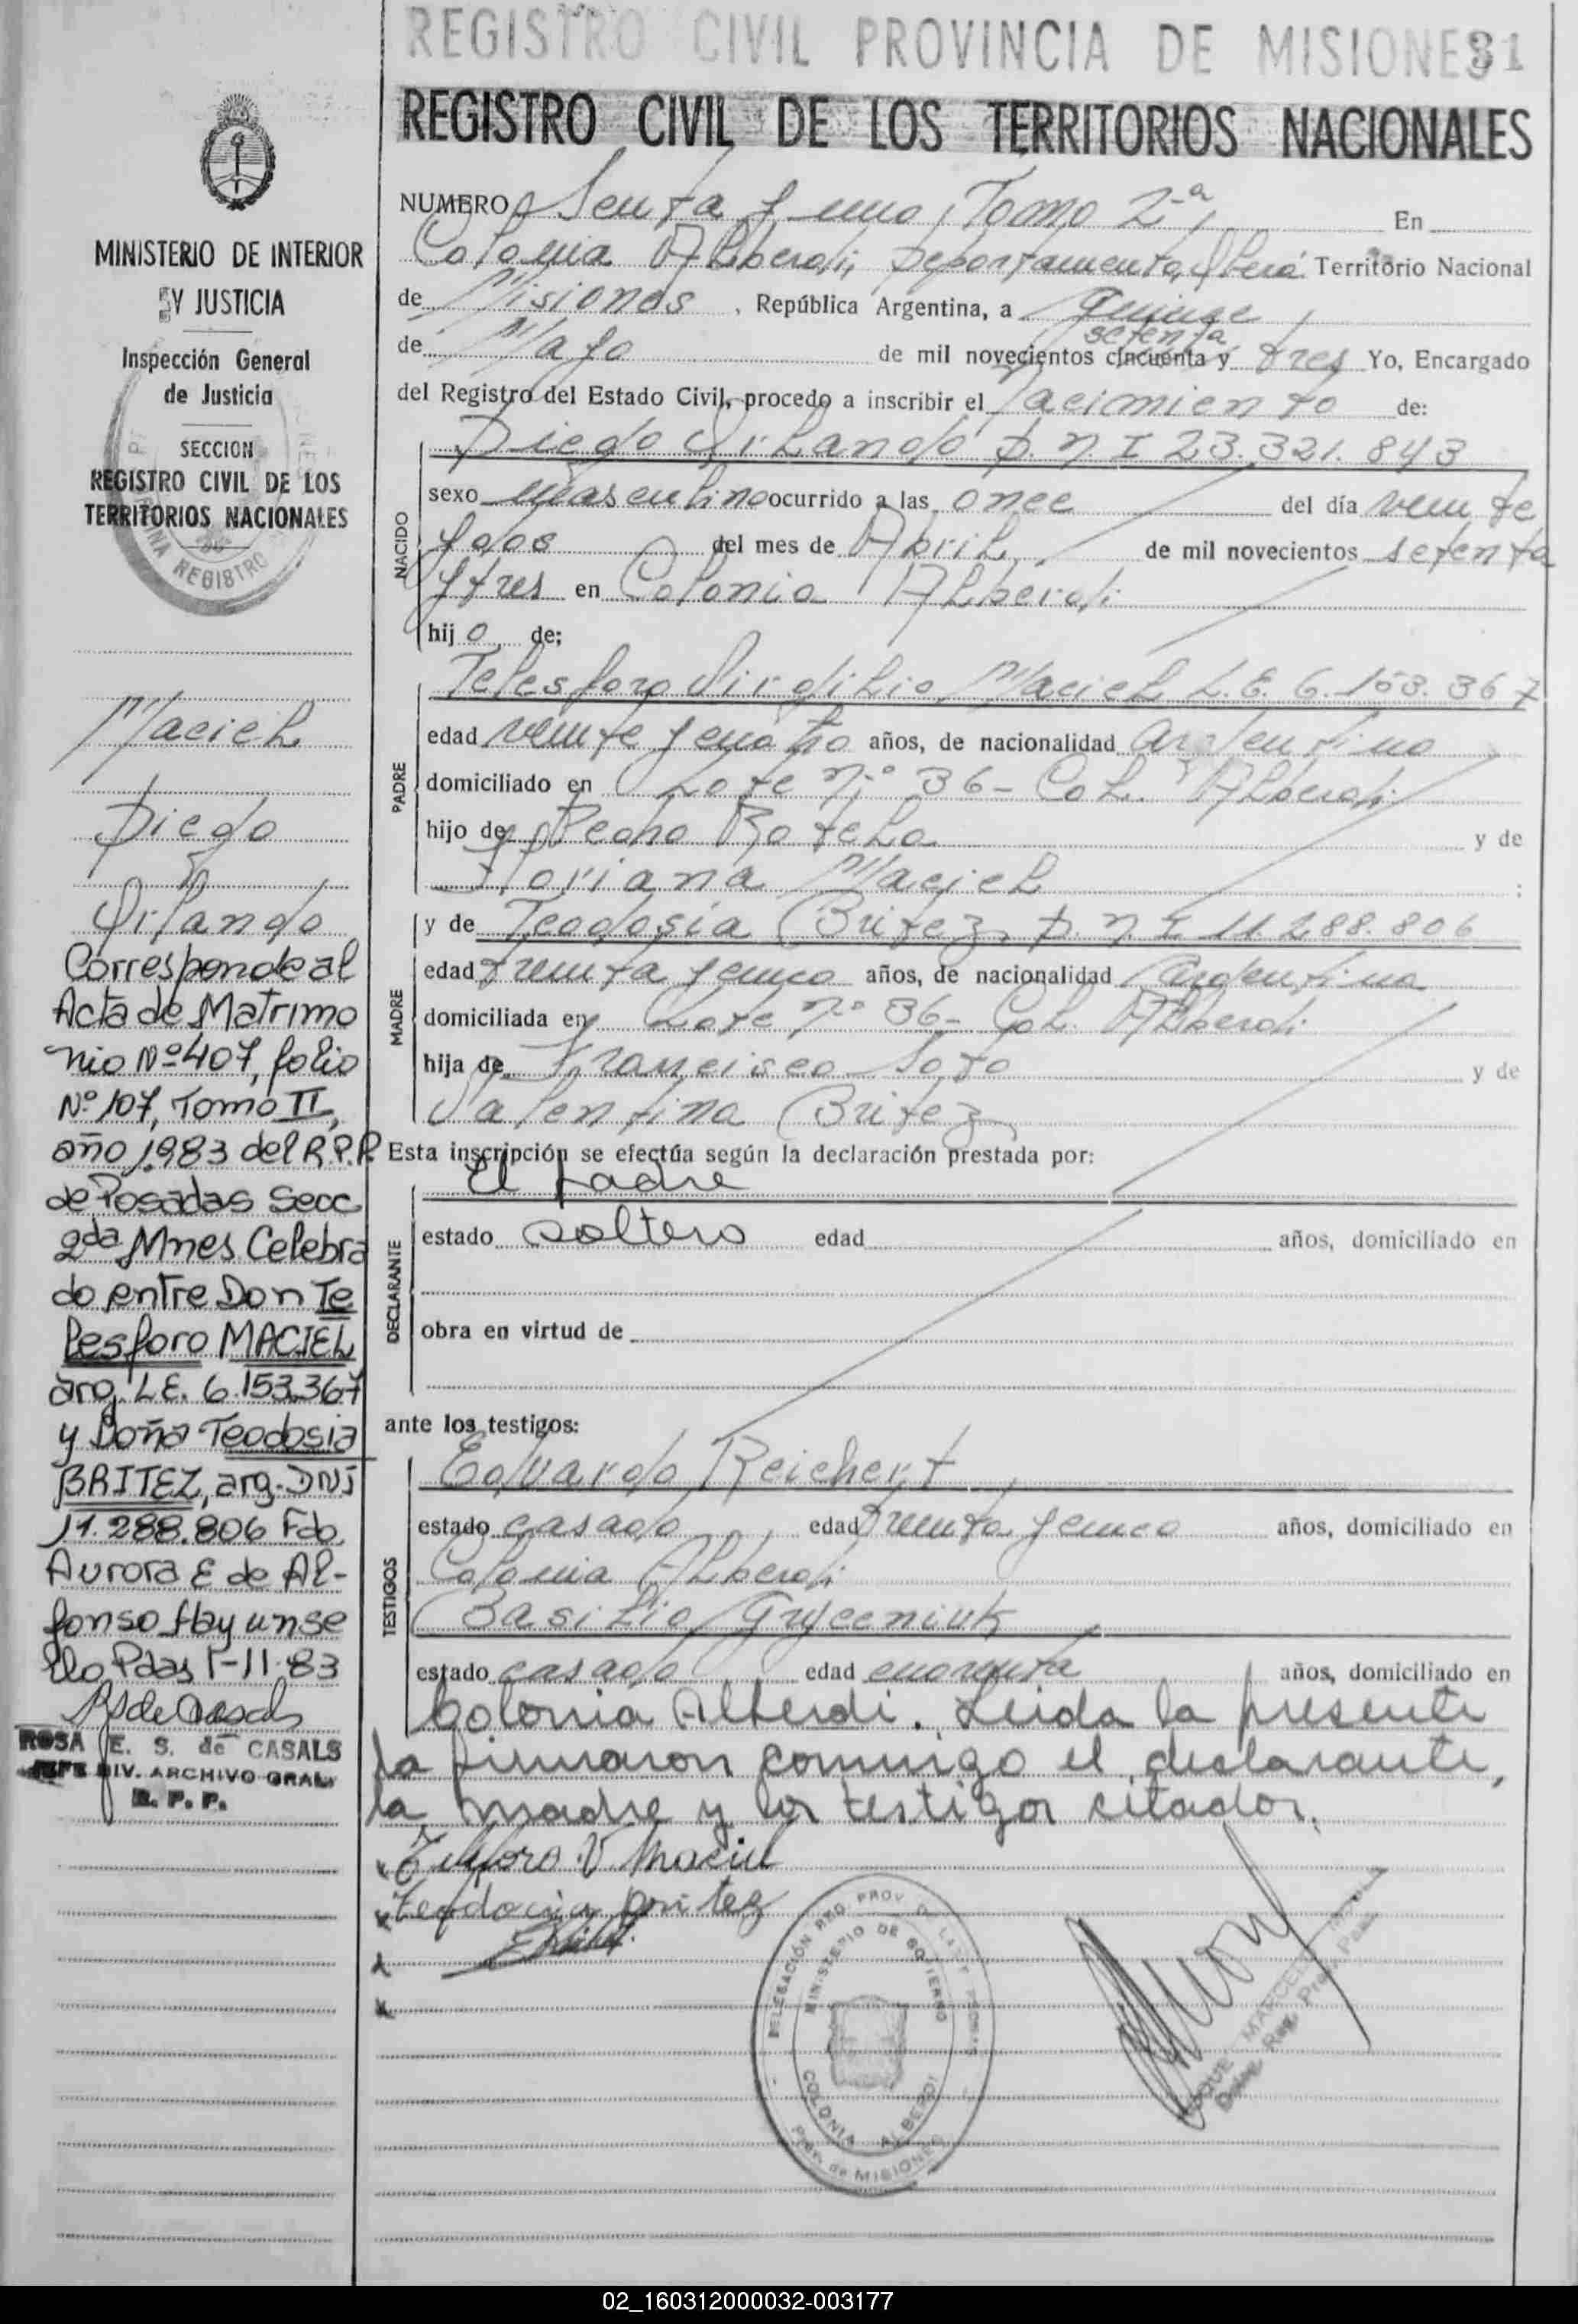 REGISTRO CIVIL PROVINCIA DE MISIONES
31
REGISTRO CIVIL DE LOS TERRITORIOS NACIONALES
MINISTERIO DE INTERIOR
Y JUSTICIA
Inspección General
de Justicia
SECCION
REGISTRO CIVIL DE LOS
TERRITORIOS NACIONALES
REGISTRO
Maciel
Diego
Orlando
Corresponde al
Acta de Matrimo
nio Nº 407, folio
Nº 107, Tomo II,
año 1.983 del R.P.P.
de Posadas Secc
2da Mnes Celebra
do entre Don Te
lesforo MACIEL
arg. L.E. 6.153.367
y Doña Teodosia
BRITEZ, arg. DNI
11.288.806 Fdo.
Aurora E de Al-
fonso Hay un se
llo Pdas 1-11-83
ROSA E. S. de CASALS
JEFE DIV. ARCHIVO GRAL.
R. P. P.
NUMERO Senta y uno, Tomo 2ª, En
Colonia Alberdi, Departamento Oberá Territorio Nacional
de Misiones, República Argentina, a quince
setenta
de Mayo de mil novecientos cincuenta y tres Yo, Encargado
del Registro del Estado Civil, procedo a inscribir el Nacimiento de:
NACIDO
Diego Orlando D.N.I 23.321.843
sexo masculino ocurrido a las once del día veinte
y dos del mes de Abril, de mil novecientos setenta
y tres en Colonia Alberdi
hijo de:
PADRE
Telesforo Virgilio Maciel L.E. 6.153.367
edad veinte y cuatro años, de nacionalidad argentino
domiciliado en Lote Nº 36- Col. Alberdi
hijo de Pedro Botelo y de
Floriana Maciel :
MADRE
y de Teodosia Britez, D.N.I 11.288.806
edad treinta y cinco años, de nacionalidad argentina
domiciliada en Lote Nº 36- Col. Alberdi
hija de Francisco Soto y de
Valentina Britez
Esta inscripción se efectúa según la declaración prestada por:
DECLARANTE
El padre
estado soltero edad años, domiciliado en
obra en virtud de
ante los testigos:
TESTIGOS
Eduardo Reichert,
estado casado, edad treinta y cinco años, domiciliado en
Colonia Alberdi
Basilio Gryceniuk
estado casado edad cuarenta años, domiciliado en
Colonia Alberdi. Leida la presente
la firmaron conmigo el declarante,
la madre y los testigos citados.
Telesforo V Maciel
Teodocia britez
DELEGACIÓN REG. PROV. DE LAS PERSONAS
MINISTERIO DE GOBIERNO
COLONIA ALBERDI
Prov. de MISIONES
02_160312000032-003177